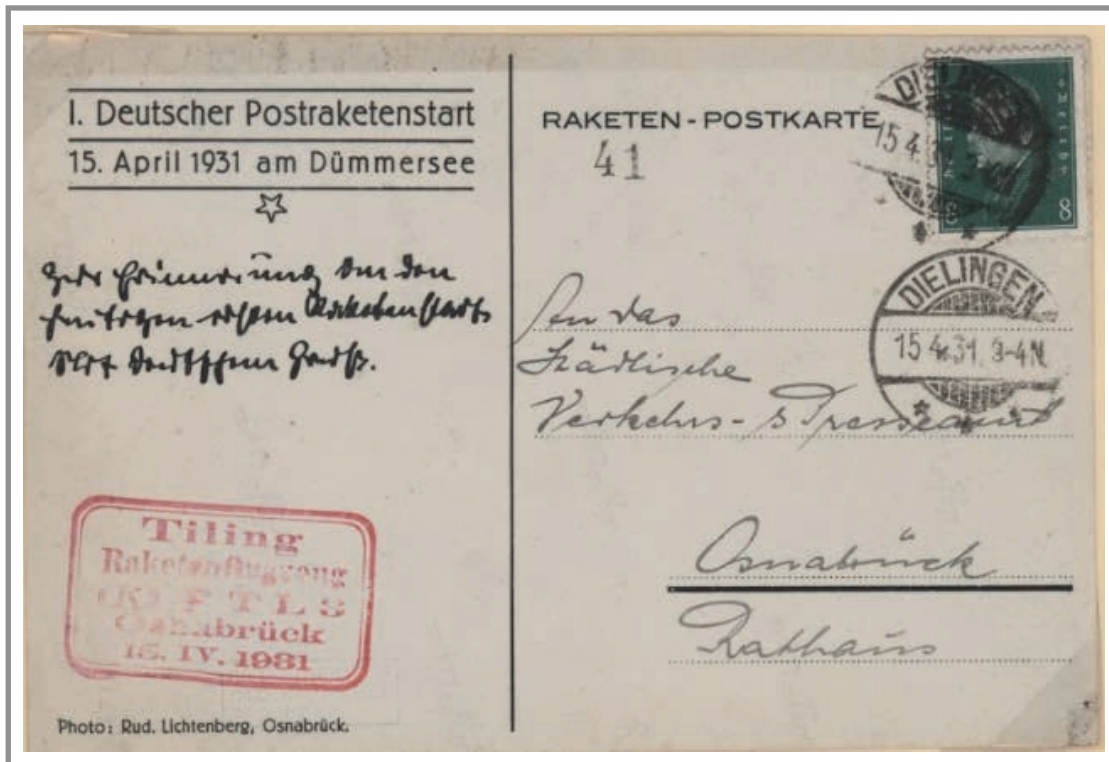 I. Deutscher Postraketenstart
15. April 1931 am Dümmersee
Zur Erinnerung an den
heutigen ersten Raketenstart.
Mit deutschem Gruß.
Tiling
Raketenflugzeug
F T L 3
Osnabrück
15. IV. 1931
Photo: Rud. Lichtenberg, Osnabrück.
RAKETEN-POSTKARTE
41
DIELINGEN
15 4.31
8
DIELINGEN
15 4.31. 3-4N.
An das
Städtische
Verkehrs- & Presseamt
Osnabrück
Rathaus